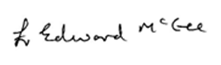 Edward McGee